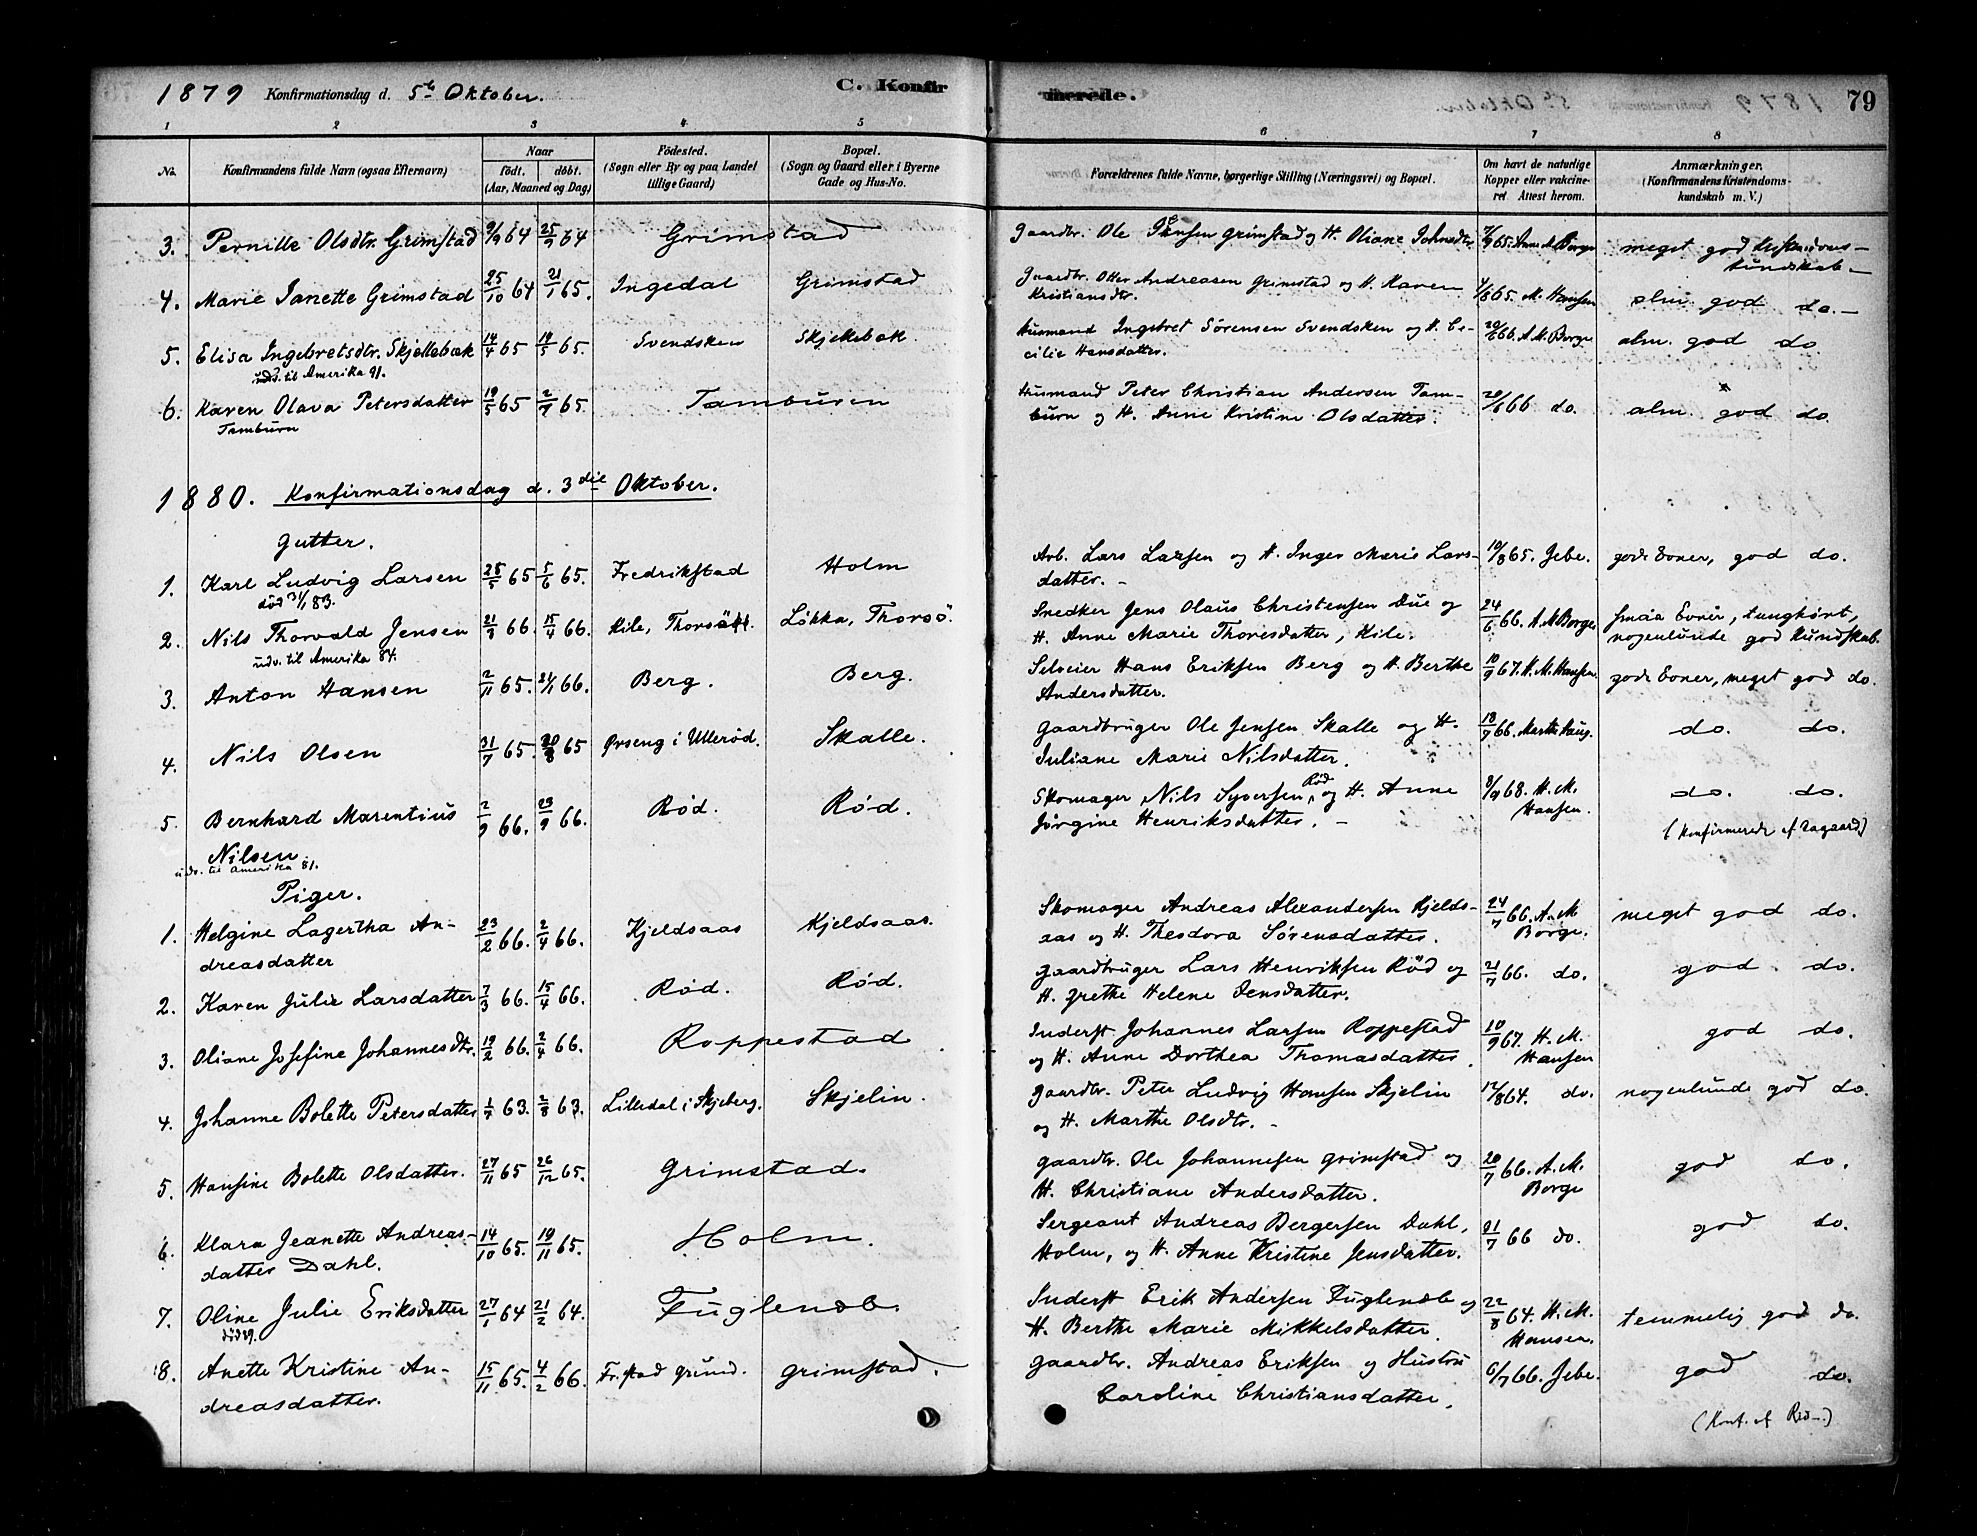 1879 Konfirmationsdag d. 5te Oktober. C. Konfirmerede. 79
1 2 3 4 5 6 7 8
No. Konfirmandens fulde Navn (ogsaa Efternavn) Naar født. døbt. (Aar, Maaned og Dag) Fødested. (Sogn eller By og paa Landet tillige Gaard) Bopæl. (Sogn og Gaard eller i Byerne Gade og Hus-No. Forældrenes fulde Navne, borgerlige Stilling (Næringsvei) og Bopæl. Om havt de naturlige Kopper eller vakcineret Attest herom. Anmærkninger. (Konfirmandens Kristendomskundskab m. V.)
3. Pernille Olsdtr. Grimstad 9/9 64 25/9 64 Grimstad Gaardbr. Ole Jensen Grimstad og H. Oliane Johnsdtr. 65. Anne M. Borge meget god Kristendoms-
kundskab.
4. Marie Janette Grimstad 25/10 64 21/1 65. Ingedal Grimstad Gaardbr. Otter Andreasen Grimstad og H. Karen
Kristiansdtr. 1/8 65. M. Hansen alm. god do.
5. Elisa Ingebretsdtr. Skjellebæk 14/4 65 14/5 65. Svendsken Skjellebæk Husmand Ingebret Sörensen Svendsken og H. Ce-
cilie Hansdatter. 20/6 66. A. M. Borge alm. god do
udv. til Amerika 91.
6. Karen Olava Petersdatter 19/5 65 2/7 65. Tamburen Husmand Peter Christian Andersen Tam-
burn og H. Anne Kristine Olsdatter. 20/6 66 do. alm. god do.
Tamburn
1880. Konfirmationsdag d. 3die Oktober.
Gutter.
1. Karl Ludvig Larsen 25/5 65 5/6 65. Fredrikstad Holm Arb. Lars Larsen og H. Inger Marie Lars-
datter. 10/8 65. Jebe. gode Evner, god do.
død 31/1 83.
2. Nils Thorvald Jensen 21/3 66. 15/4 66. Kile, Thorsö Løkka, Thorsö. Snedker Jens Olaus Christensen Due og
H. Anne Marie Thoresdatter, Kile. 24/6 66. A. M Borge smaa Evner, tunghørt,
nogenlunde god Kundskab.
udv. til Amerika 84.
3. Anton Hansen 2/11 65. 21/1 66. Berg. Berg. Selveier Hans Eriksen Berg og H. Berthe
Andersdatter. 10/9 67. H. M. Hansen. gode Evner, meget god do.
4. Nils Olsen 31/7 65. 20/8 65 Ørseng i Ullerød. Skalle. Gaardbruger Ole Jensen Skalle og H.
Juliane Marie Nilsdatter. 18/7 66. Marthe Haug. do. do.
5. Bernhard Marentius 2/9 66. 23/9 66. Rød. Rød. Skomager Nils Syversen Rød og H. Anne
Jørgine Henriksdatter. 8/9 68. H. M.
Hansen. do. do.
(Konfirmerede af Aagaard)
Nilsen
udv. til Amerika 81.
Piger.
1. Helgine Lagertha An-
dreasdatter 23/2 66. 2/4 66. Kjeldsaas Kjeldsaas. Skomager Andreas Alexandersen Kjelds-
aas og H. Theodora Sörensdatter. 24/7 66. A. M
Borge. meget god do.
2. Karen Julie Larsdatter 7/3 66. 15/4 66. Rød. Rød. Gaardbruger Lars Henriksen Rød og
H. Grethe Helene Jensdatter. 21/7 66. do. god do.
3. Oliane Josefine Johannesdtr. 19/2 66. 2/4 66. Roppestad Inderst Johannes Larsen Roppestad
og H. Anne Dorthea Thomasdatter. 10/9 67. H. M.
Hansen god do.
4. Johanne Bolette Petersdatter 1/7 63. 2/8 63. Lilledal i Skjeberg. Skjelin. Gaardbr. Peter Ludvig Hansen Skjelin
og H. Marthe Olsdtr. 12/8 64. do. nogenlunde god do.
5. Hansine Bolette Olsdatter. 27/11 65 26/12 65. Grimstad. Gaardbr. Ole Johannesen Grimstad og
H. Christiane Andersdatter. 20/7 66. A. M.
Borge god do.
6. Klara Jeanette Andreas-
datter Dahl. 14/10 65. 19/11 65. Holm. Sergeant Andreas Bergersen Dahl,
Holm, og H. Anne Kristine Jensdatter. 21/7 66 do. god do.
7. Oline Julie Eriksdatter 27/1 64 21/2 64. Fuglenæb. Inderst Erik Andersen Fuglenæb og
H. Berthe Marie Mikkelsdatter. 22/8 64. H. M.
Hansen. temmelig god do.
8. Anette Kristine An-
dreasdatter. 15/11 65. 4/2 66. Fr.stad grund. Grimstad. Gaardbr. Andreas Eriksen og Hustru
Caroline Christiansdatter. 6/7 66. Jebe. god do.
(Konf. af )